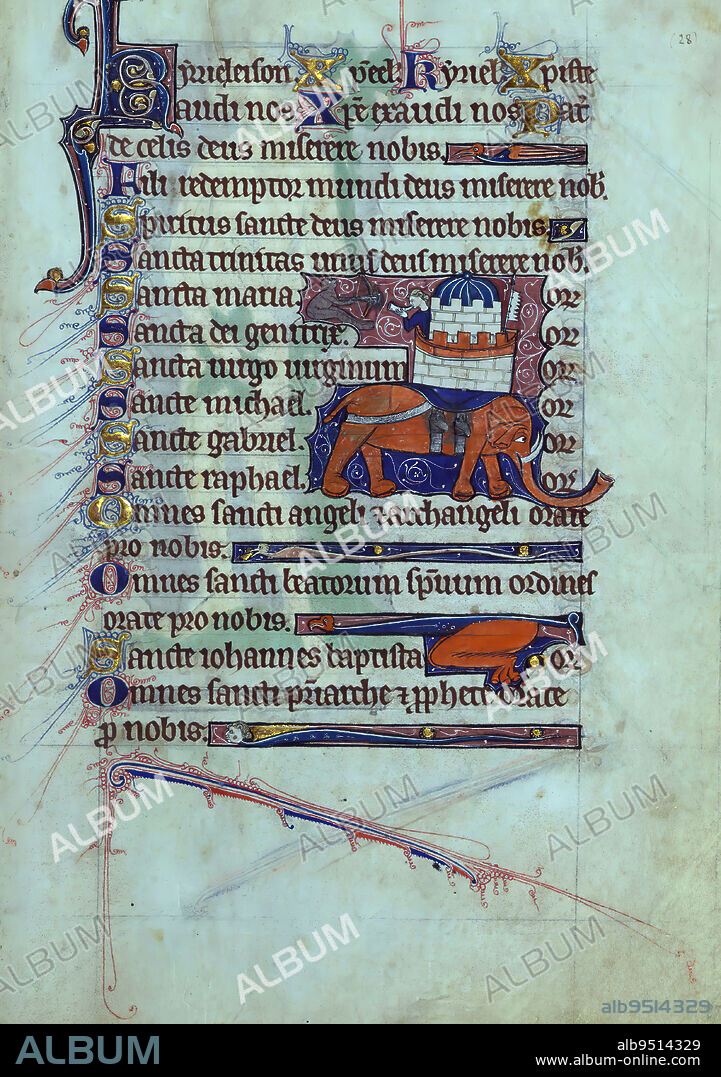 (28)
Kyrieleison Xp̄eel. Kyriel. Xpiste
audi nos. Xp̄e exaudi nos. Pat̄
de celis deus miserere nobis.
Fili redemptor mundi deus miserere nob̄.
Spiritus sancte deus miserere nobis.
Sancta trinitas unus deus miserere nob̄.
Sancta maria. orͬ
Sancta dei genitrix. orͬ
Sancta uirgo uirginum orͬ
Sancte michael. orͬ
Sancte gabriel. orͬ
Sancte raphael. orͬ
Omnes sancti angeli ⁊ archangeli orate
pro nobis.
Omnes sancti beatorum sp̄uum ordines
orate pro nobis.
Sancte iohannes baptista orͬ
Omnes sancti pr̄iarche ⁊ ꝓphete orate
ꝓ nobis.
ALBUM
alb9514329
ALBUM
alb9514329
www.album-online.com